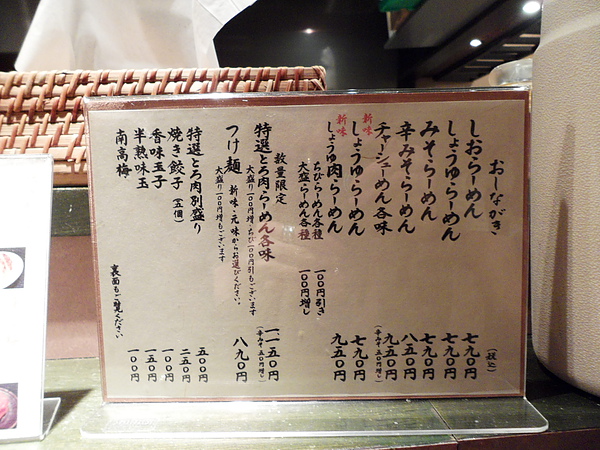 おしながき
(税込)
しおらーめん 七九〇円
しょうゆらーめん 七九〇円
みそらーめん 七九〇円
辛みそらーめん 八五〇円
チャーシューめん各味 九五〇円
(辛みそ五〇円増し)
新味
しょうゆらーめん 七九〇円
新味
しょうゆ肉らーめん 九五〇円
ちびらーめん各種 一〇〇円引き
大盛らーめん各種 一〇〇円増し
数量限定
特選とろ肉らーめん各味 一一五〇円
(辛みそ五〇円増し)
大盛り一〇〇円増・ちび一〇〇円引もございます
つけ麺 新味・元味からお選びください。 八九〇円
大盛り一〇〇円増もございます
特選とろ肉別盛り 五〇〇円
焼き餃子(五個) 二五〇円
香味玉子 一〇〇円
半熟味玉 一五〇円
南高梅 一〇〇円
裏面もご覧ください